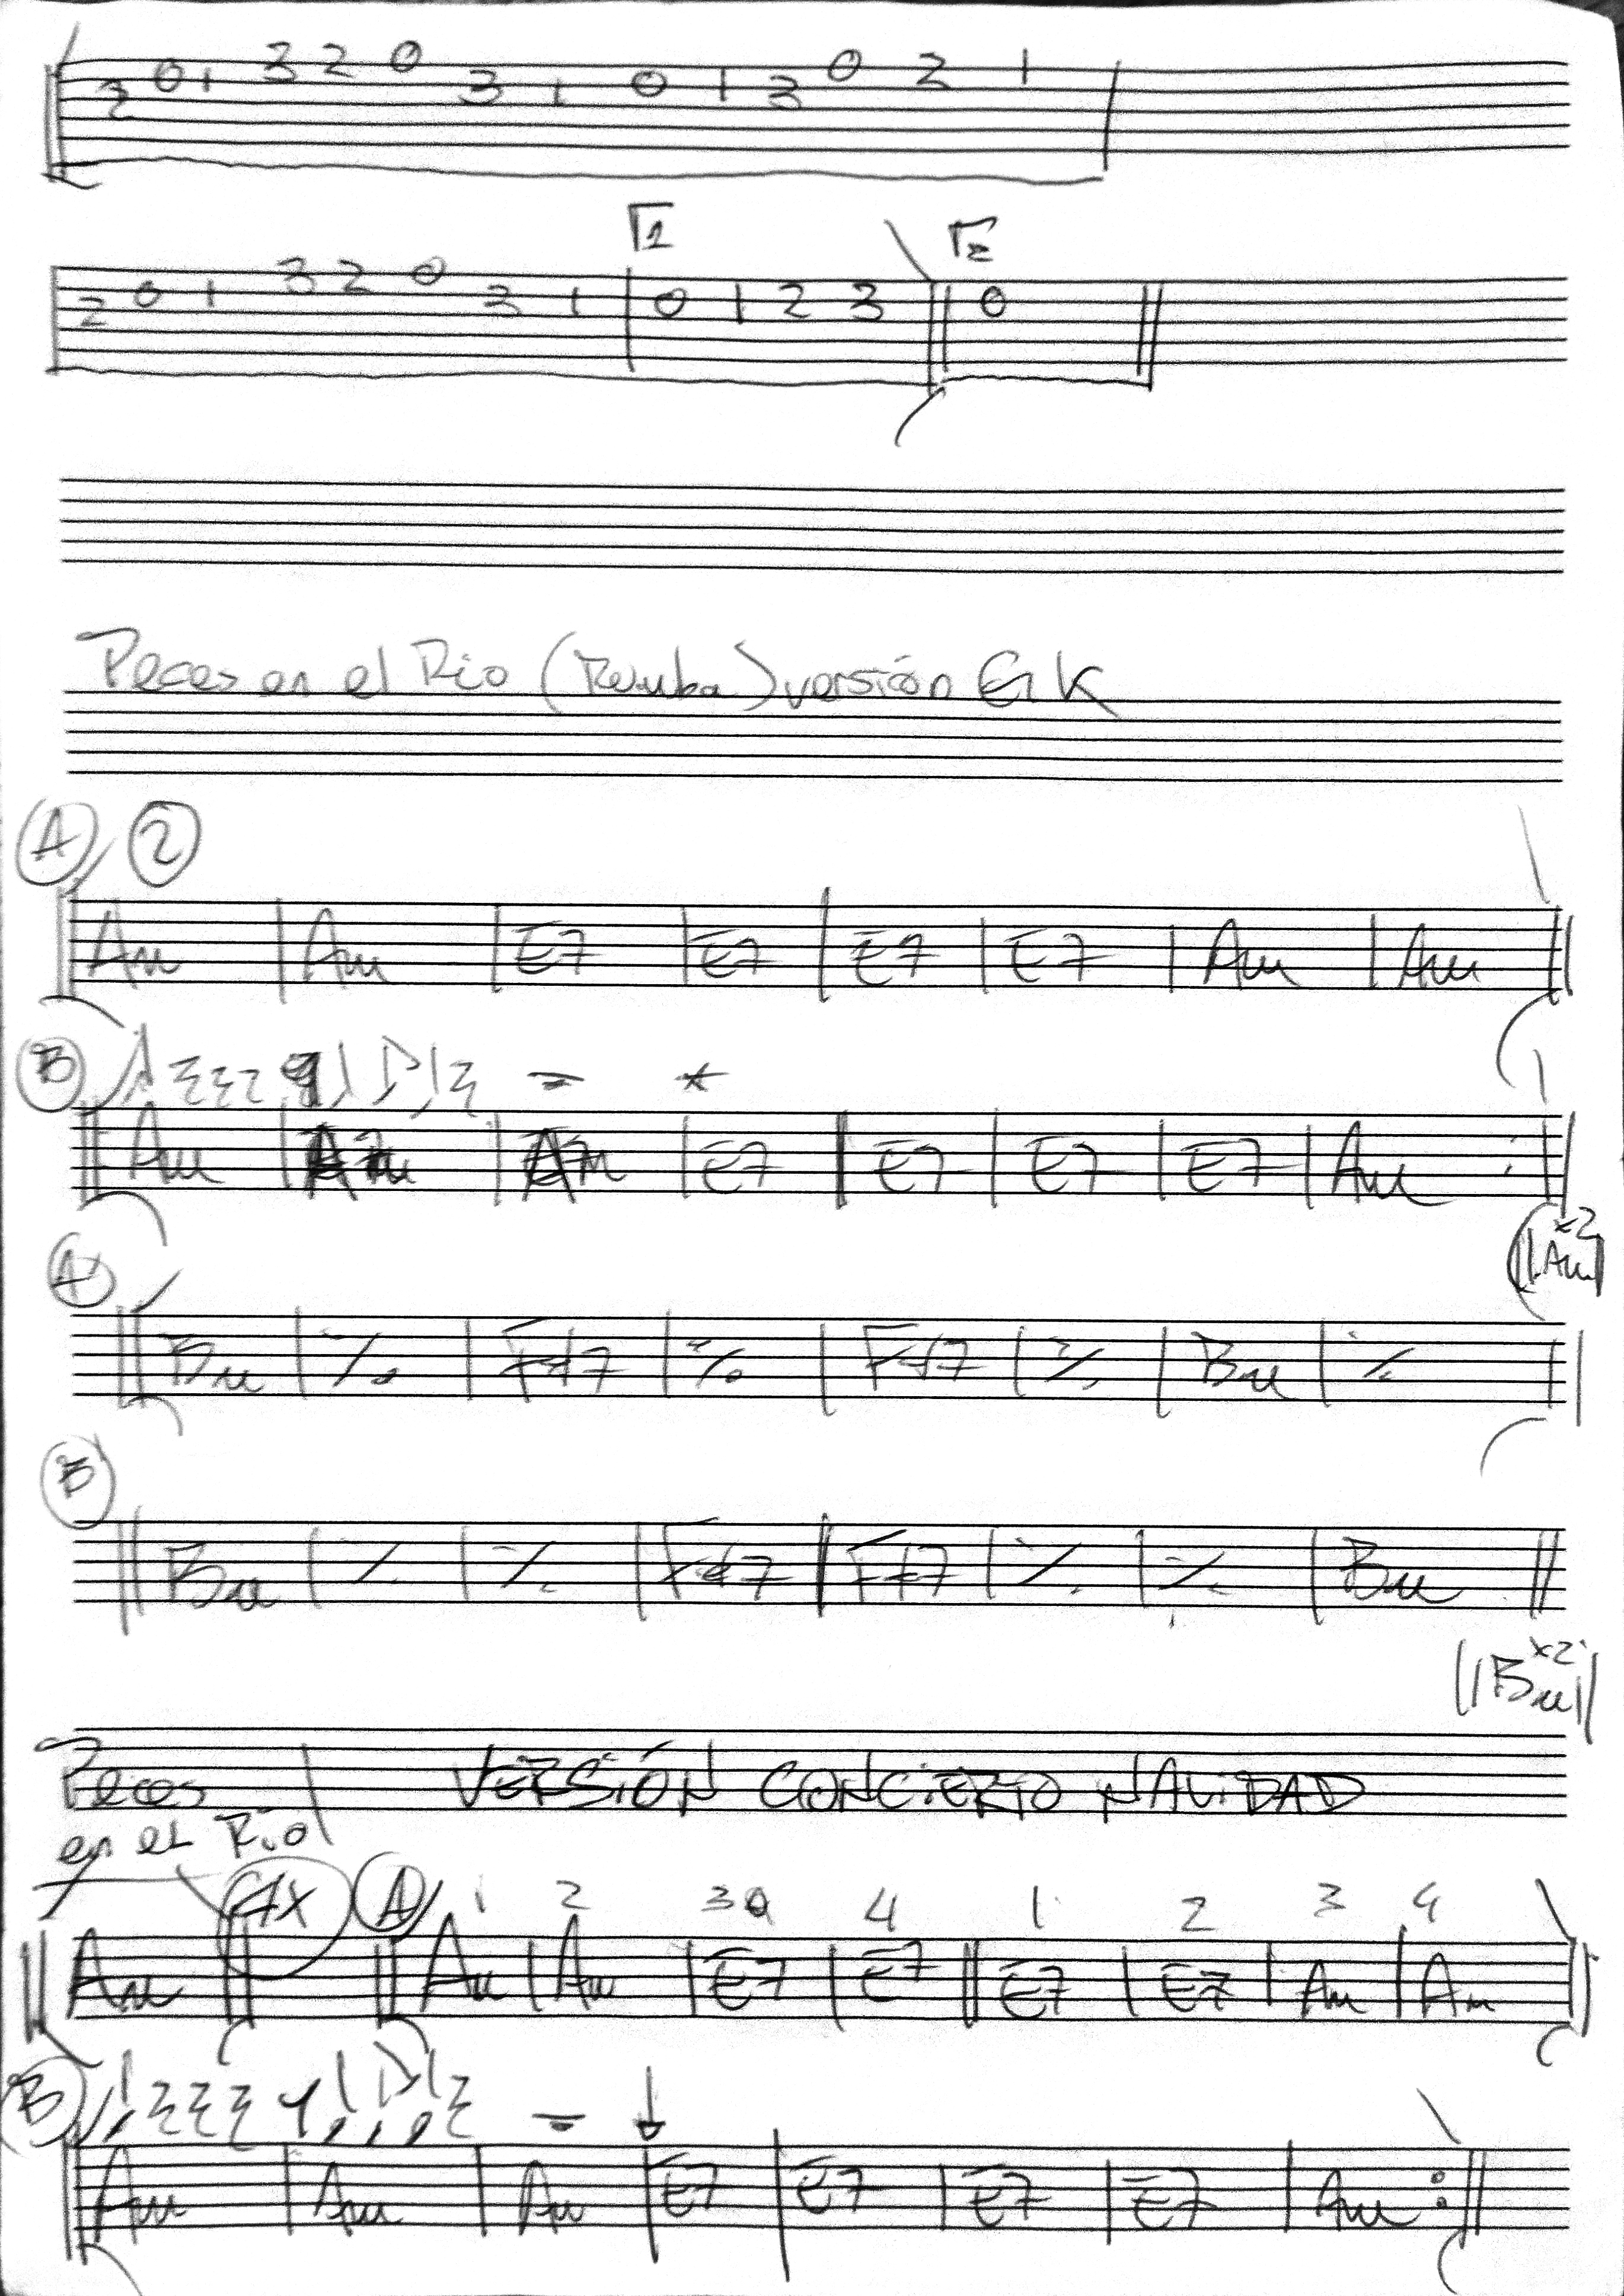 2 0 1 3 2 0 3 1 0 1 3 0 2 1
Γ1 Γ2
2 0 1 3 2 0 3 1 | 0 1 2 3 || 0 ||
Peces en el Rio (Rumba) versión
A 2
|| Am | Am | E7 | E7 | E7 | E7 | Am | Am ||
B = *
|| Am | Am | Am | E7 || E7 | E7 | E7 | Am :||
x2
|| Am |
A
|| Bm | ٪ | F#7 | ٪ | F#7 | ٪ | Bm | ٪ ||
B
|| Bm | ٪ | ٪ | F#7 || F#7 | ٪ | ٪ | Bm ||
x2
|| Bm ||
Peces VERSIÓN CONCIERTO NAVIDAD
en el Rio
4x A 1 2 3 4 1 2 3 4
|| Am || || Am | Am | E7 | E7 || E7 | E7 | Am | Am ||
B = ↓
|| Am | Am | Am | E7 | E7 | E7 | E7 | Am :||